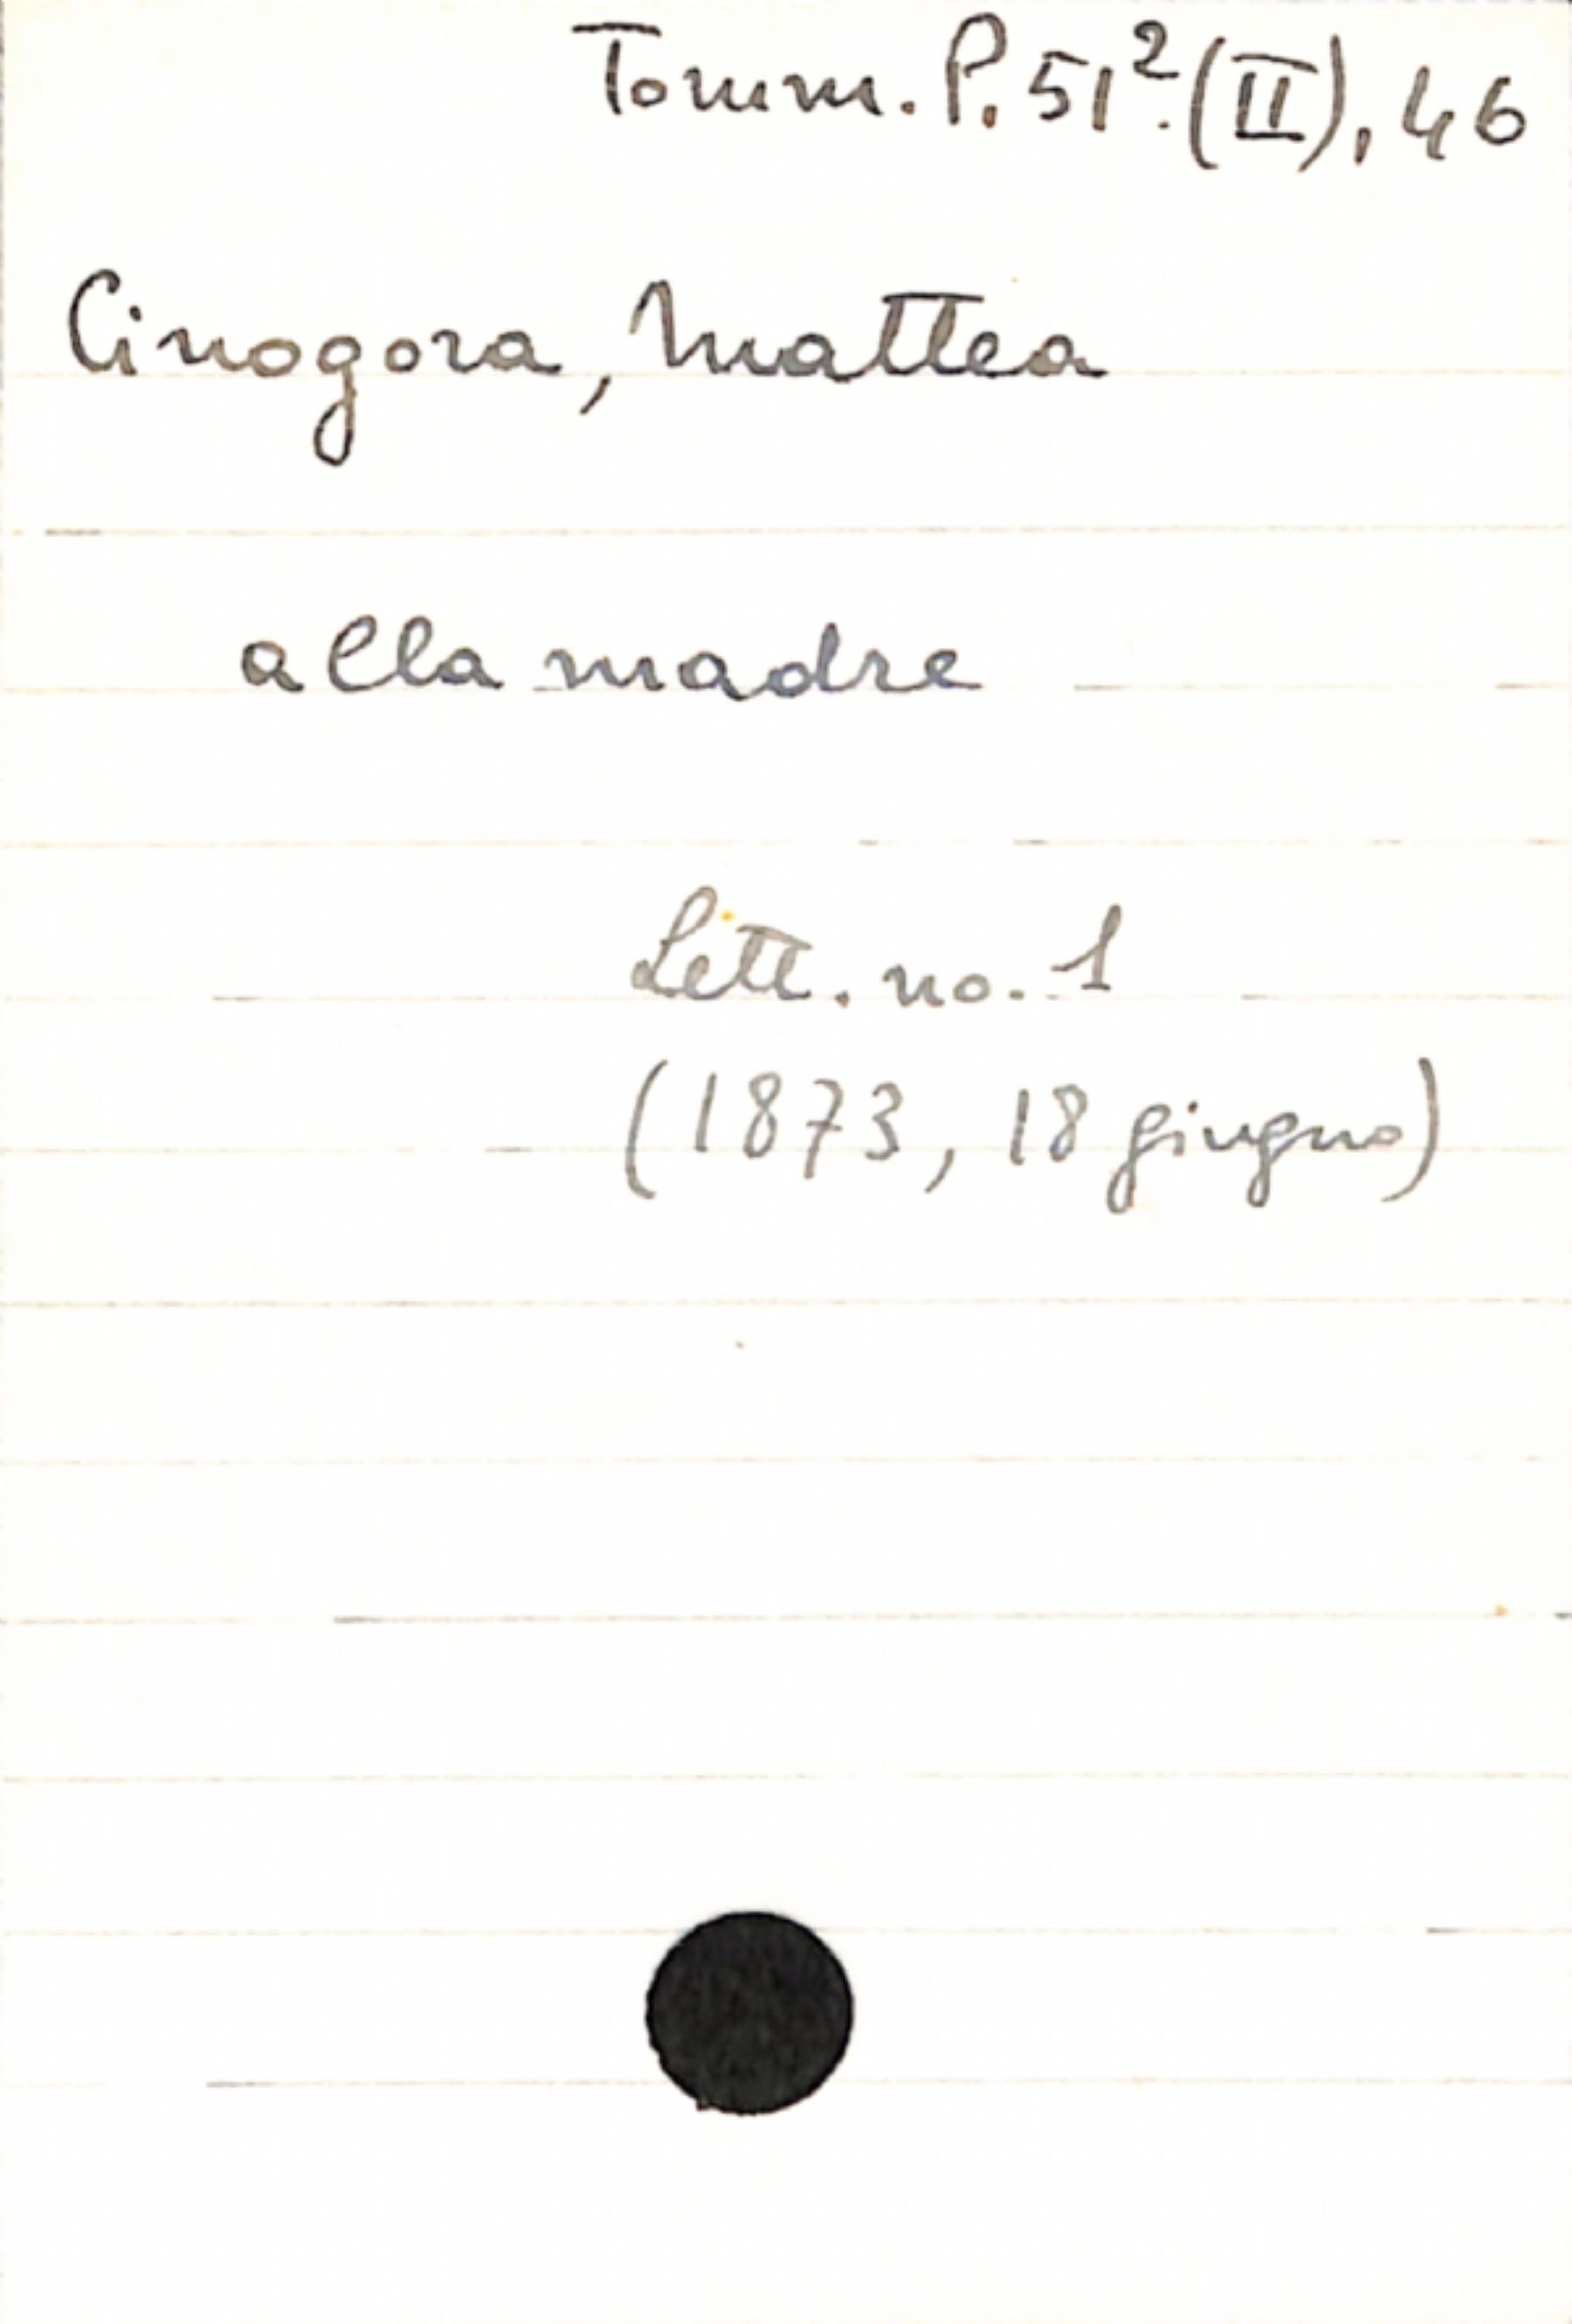 Tomm. P. 51².(II), 46
Cinogora, Mattea
alla madre
Lett. no. 1
(1873, 18 giugno)